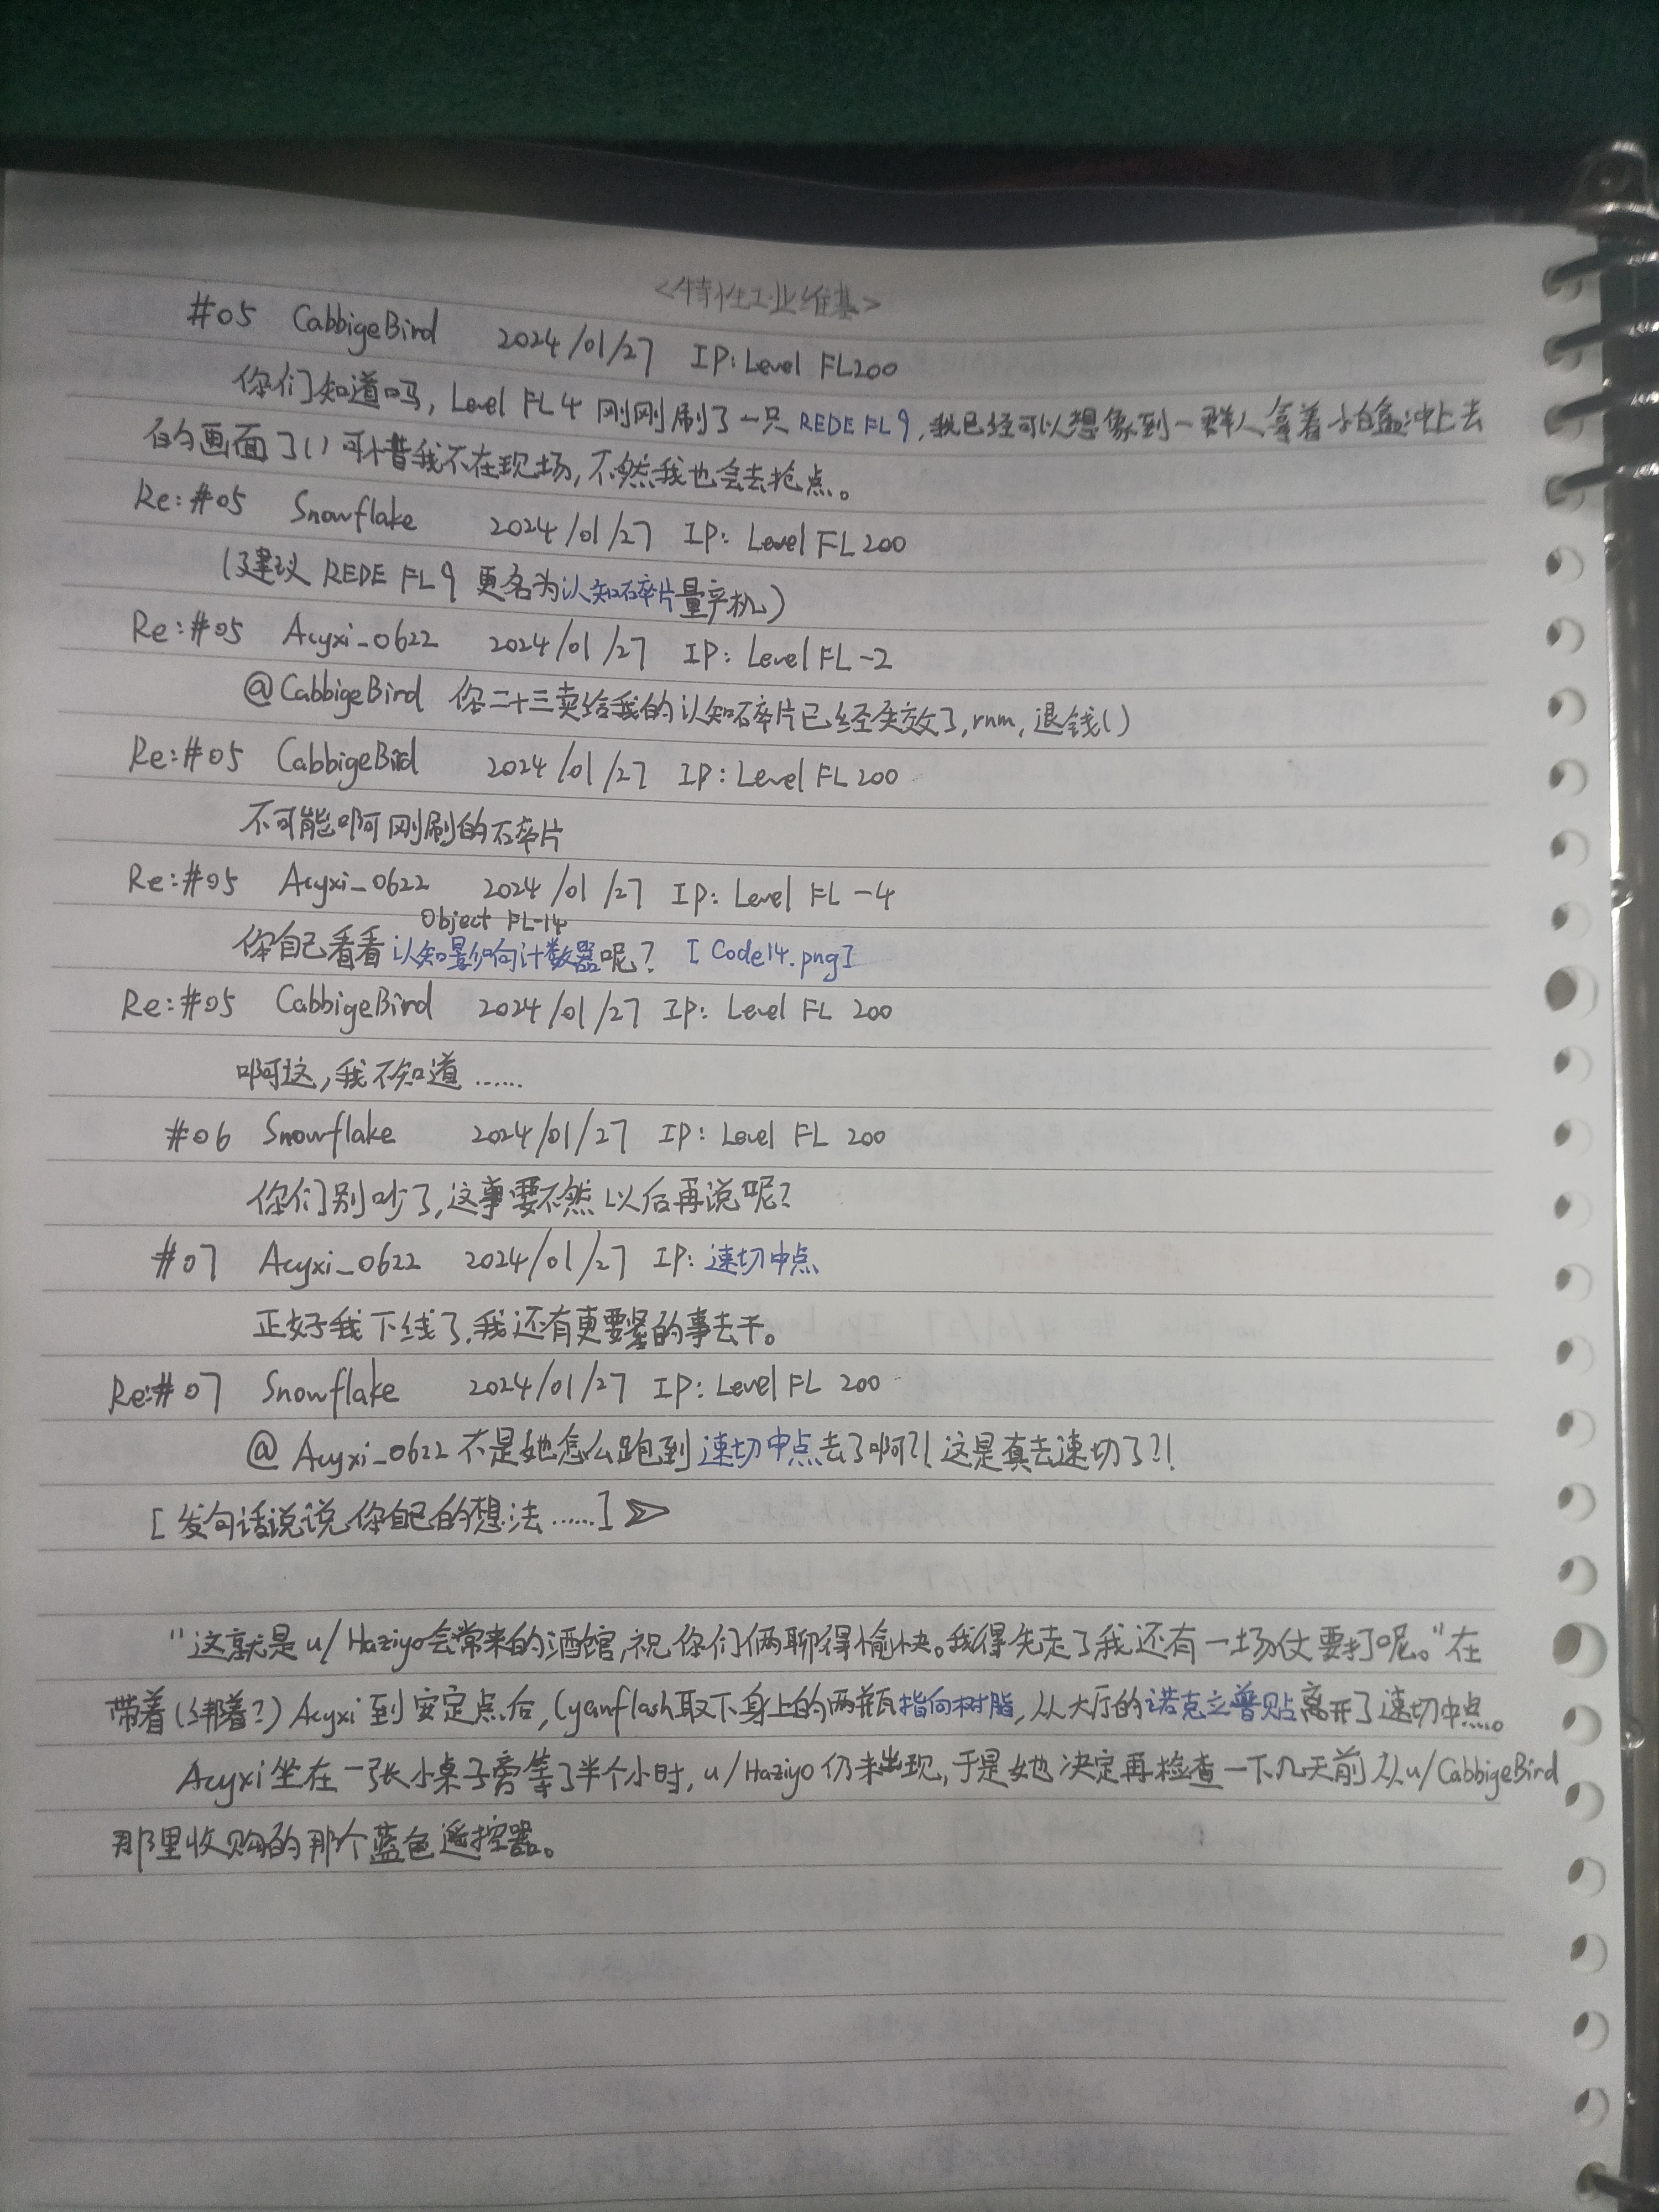 <特性工业维基>
#05 CabbigeBird 2024/01/27 IP: Level FL200
你们知道吗, Level FL 4 刚刚刷了一只 REDE FL9, 我已经可以想象到一群人拿着小白盒冲上去
的画面了() 可惜我不在现场, 不然我也会去抢点。
Re: #05 Snowflake 2024/01/27 IP: Level FL 200
(建议 REDE FL9 更名为认知碎片量产机)
Re: #05 Acyxi_0622 2024/01/27 IP: Level FL -2
@CabbigeBird 你二十三卖给我的认知碎片已经失效了, rnm, 退钱()
Re: #05 CabbigeBird 2024/01/27 IP: Level FL 200
不可能啊刚刷的碎片
Re: #05 Acyxi_0622 2024/01/27 IP: Level FL -4
Object FL-14
你自己看看认知影响计数器呢? [Code14.png]
Re: #05 CabbigeBird 2024/01/27 IP: Level FL 200
啊这, 我不知道……
#06 Snowflake 2024/01/27 IP: Level FL 200
你们别吵了, 这事要不然以后再说呢?
#07 Acyxi_0622 2024/01/27 IP: 速切中点
正好我下线了, 我还有更要紧的事去干。
Re: #07 Snowflake 2024/01/27 IP: Level FL 200
@ Acyxi_0622 不是她怎么跑到速切中点去了啊?! 这是真去速切了?!
[发句话说说你自己的想法……] ➢
"这就是 u/Haziyo会常来的酒馆, 祝你们俩聊得愉快。我得先走了我还有一场仗要打呢。"在
带着(绑着?) Acyxi 到安定点后, Cyanflash取下身上的两瓶指向树脂, 从大厅的诺克立普贴离开了速切中点。
Acyxi坐在一张小桌子旁等了半个小时, u/Haziyo仍未出现, 于是她决定再检查一下几天前从u/CabbigeBird
那里收购的那个蓝色遥控器。